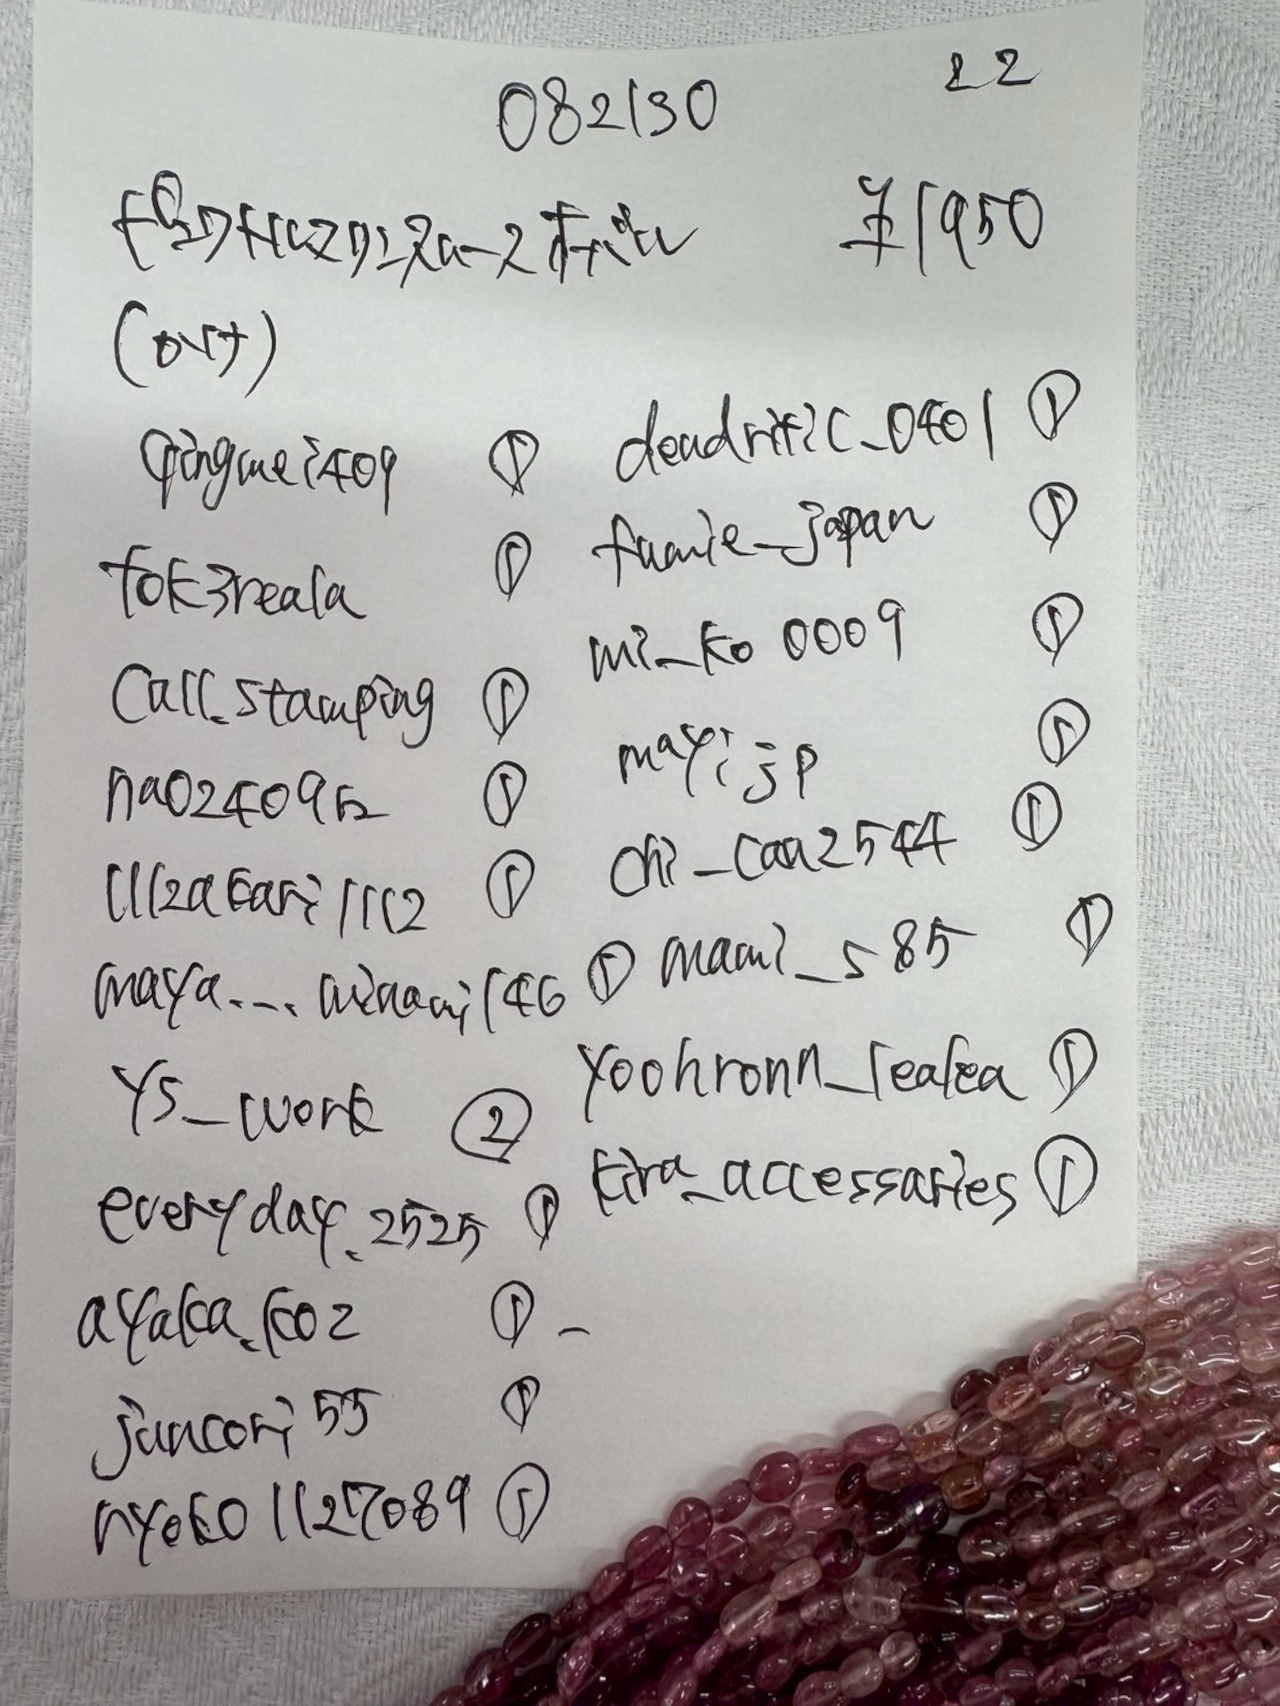 082130
22
¥1950
qingmei409 ①
tok3reala ①
Call_stamping ①
①
①
maya... minami146 ①
ys_work ②
everyday_2525 ①
ayaka_ko2 ① -
juncori55 ①
nyoko1127089 ①
dendritic_0401 ①
fumie_japan ①
mi_ko0009 ①
mayijp ①
chi_caa2544 ①
mami_s85 ①
yoohronn_leaka ①
kira_accessaries ①